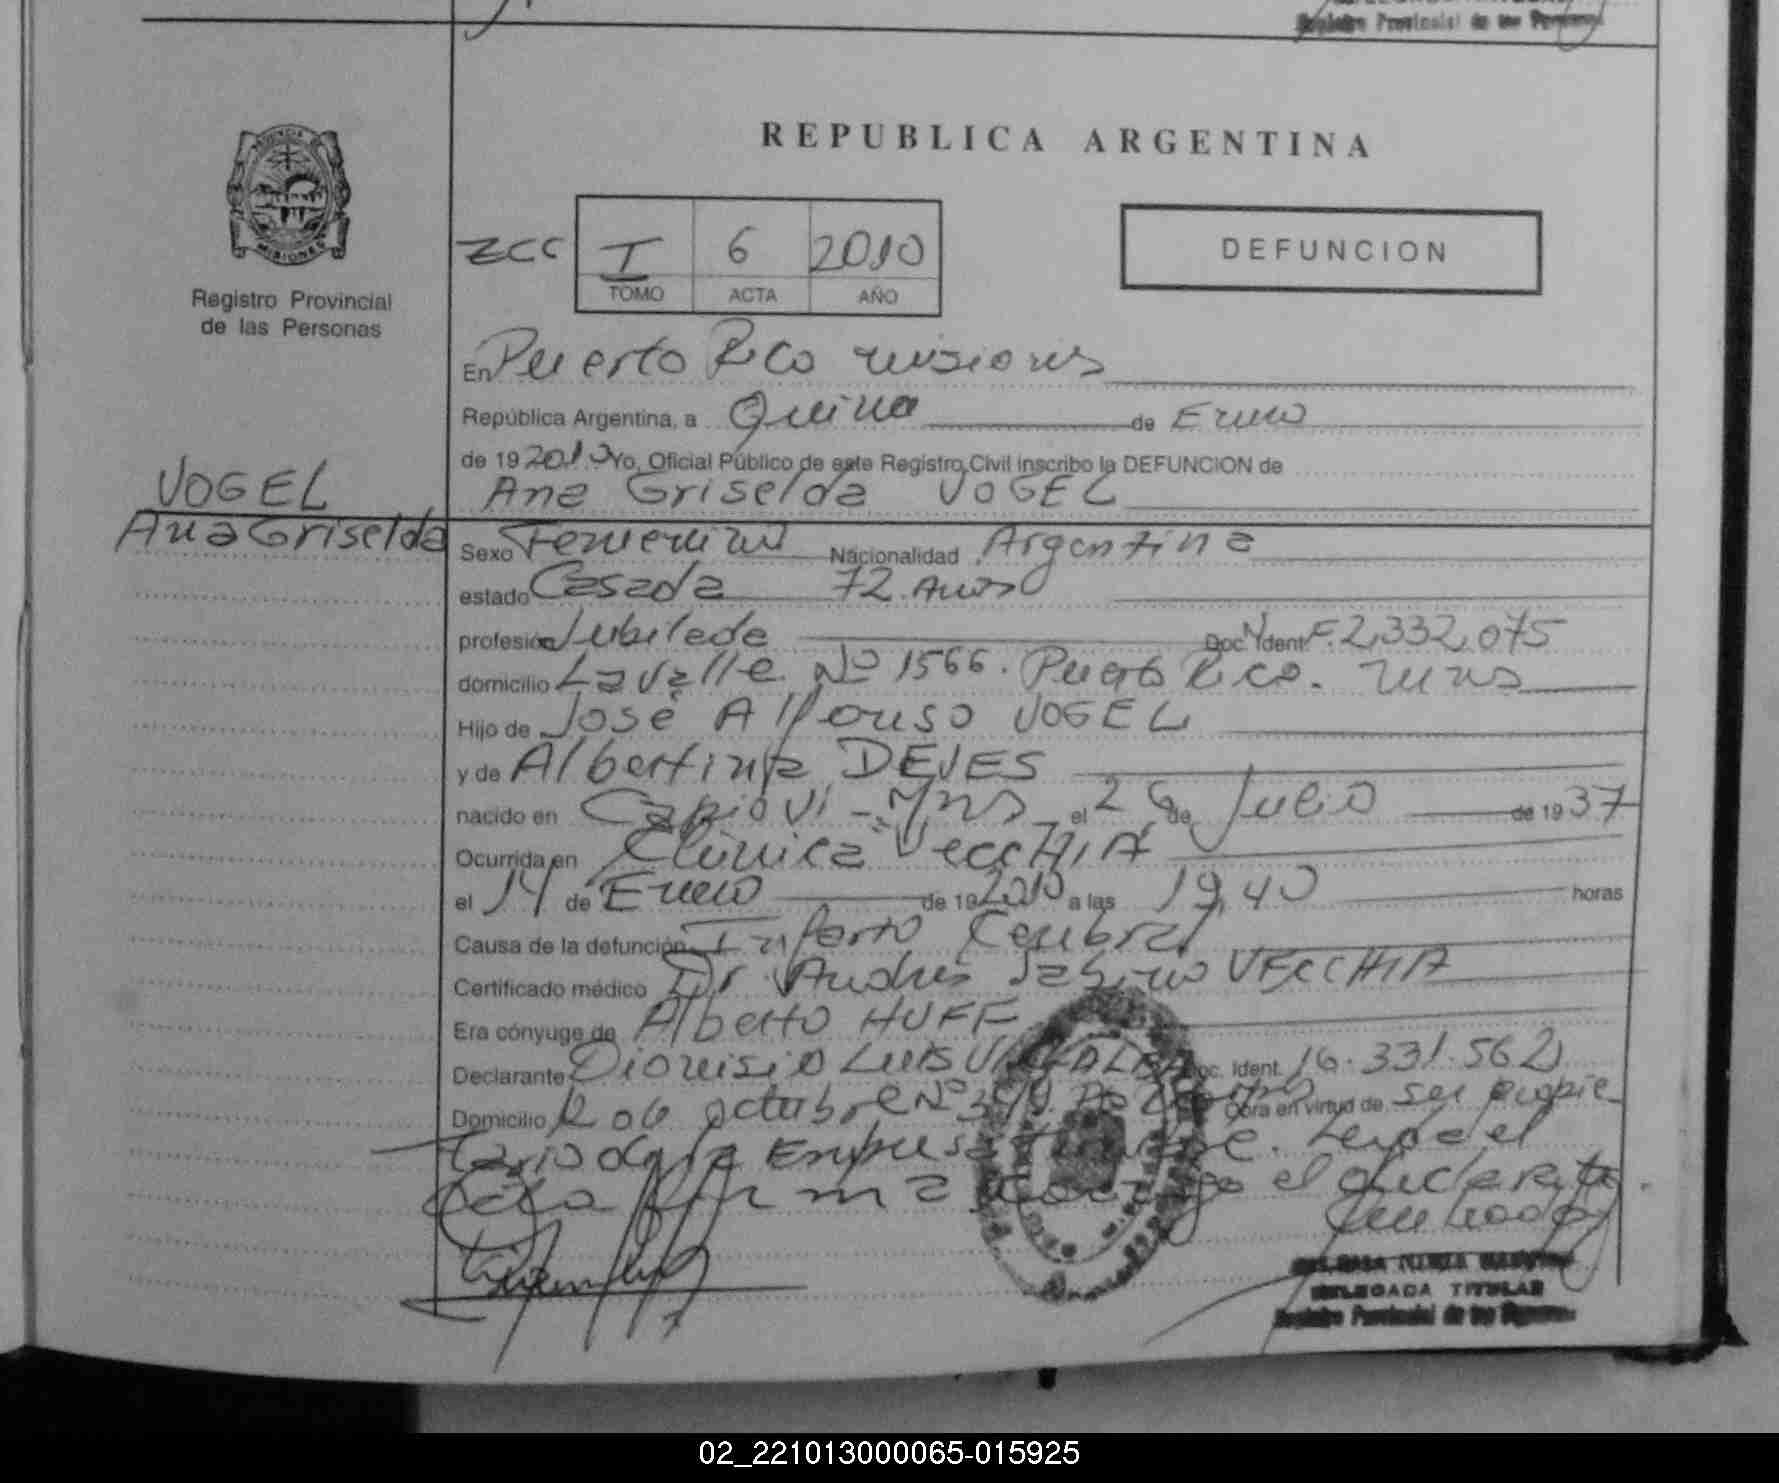 Registro Provincial de las Personas
REPUBLICA ARGENTINA
PROVINCIA DE
MISIONES
Registro Provincial
de las Personas
ZCC I 6 2010
TOMO ACTA AÑO
DEFUNCION
En Puerto Rico Misiones
República Argentina, a Quince de Enero
de 19 2010 Yo, Oficial Público de este Registro Civil inscribo la DEFUNCION de
VOGEL
Ana Griselda
Ana Griselda VOGEL
Sexo Femenino Nacionalidad Argentina
estado Casada 72 Años
profesión Jubilada Doc. Ident. F. 2,332,075
domicilio Lavalle Nº 1566. Puerto Rico. Mns
Hijo de José Alfonso VOGEL
y de Albertina DEVES
nacido en Capioví - Mns el 26 de Julio de 19 37
Ocurrida en "Clínica VeccHIA"
el 14 de Enero de 19 2010 a las 19,40 horas
Causa de la defunción Infarto Cerebral
Certificado médico Dr Andrés Sabino VECCHIA
Era cónyuge de Alberto HUFF
Declarante Dionisio Luis Doc. Ident. 16.331.562
Domicilio octubre Nº Obra en virtud de ser propie
tario de la Empresa Leída el
acta firma conmigo el declarante
DELEGADA TITULAR
Registro Provincial de las Personas
02_221013000065-015925